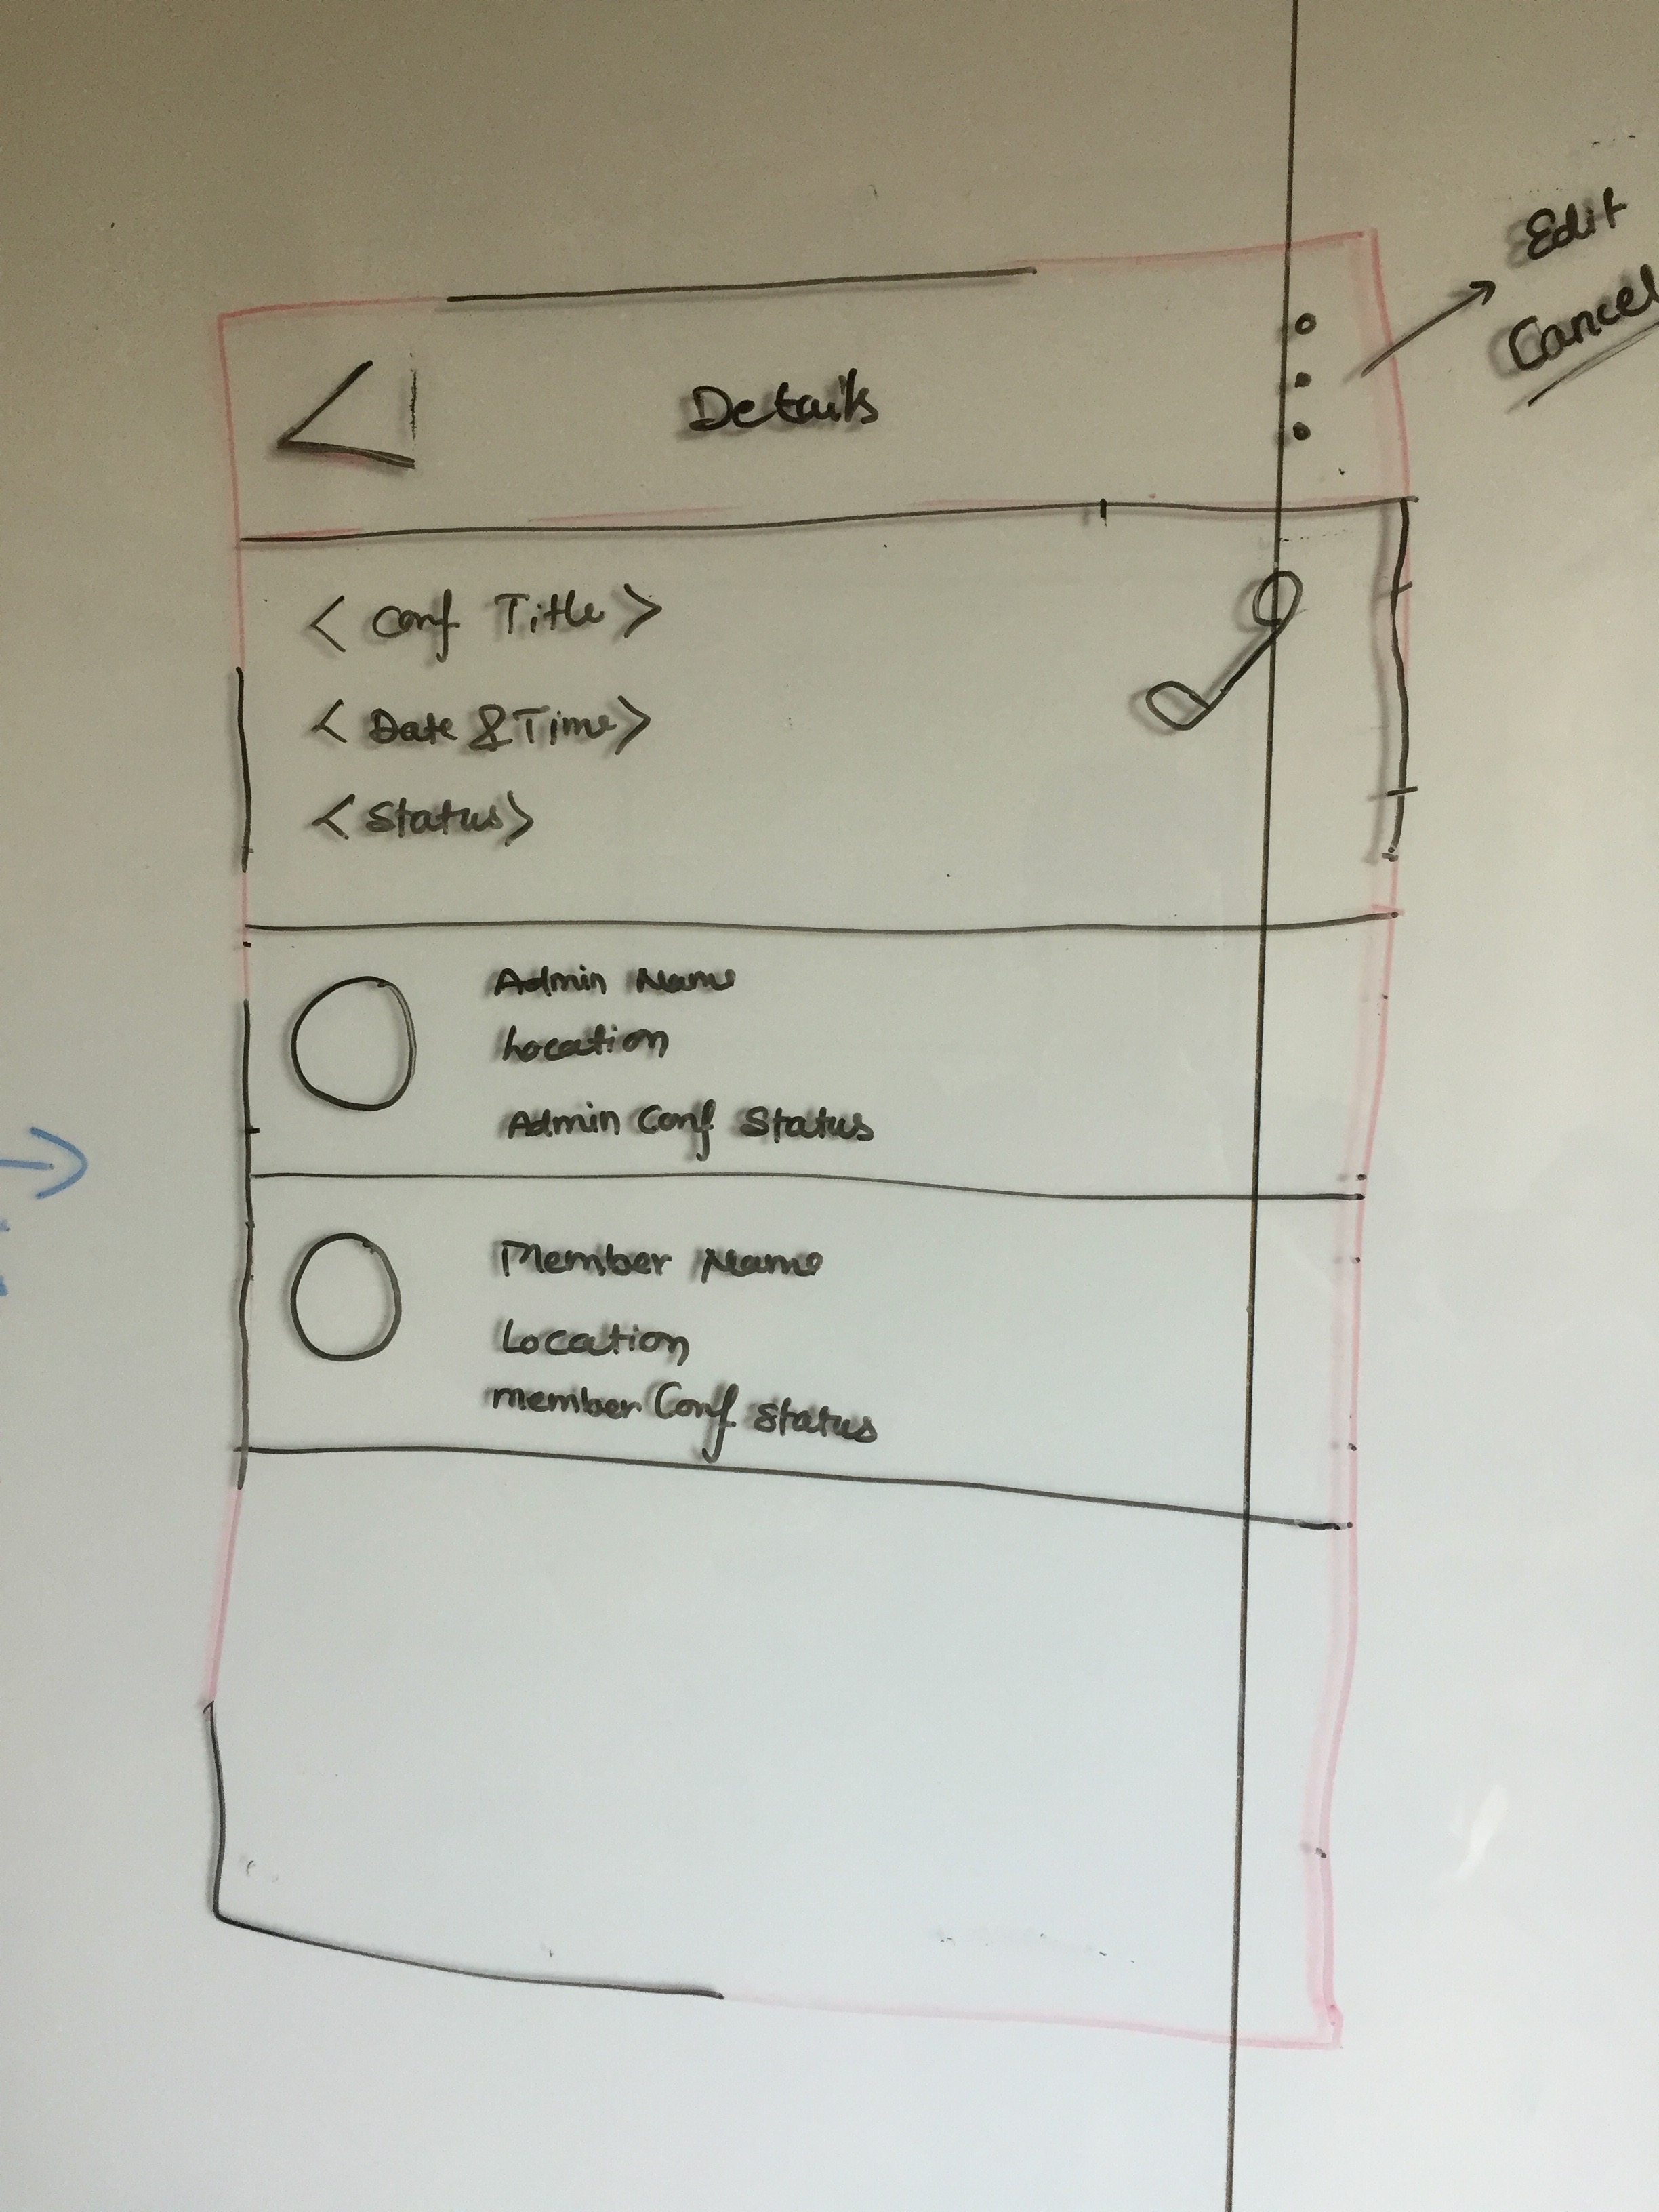 Edit
Cancel
Details
< Conf Title >
< Date & Time >
< Status >
Admin Name
Location
Admin Conf Status
Member Name
Location
member Conf Status